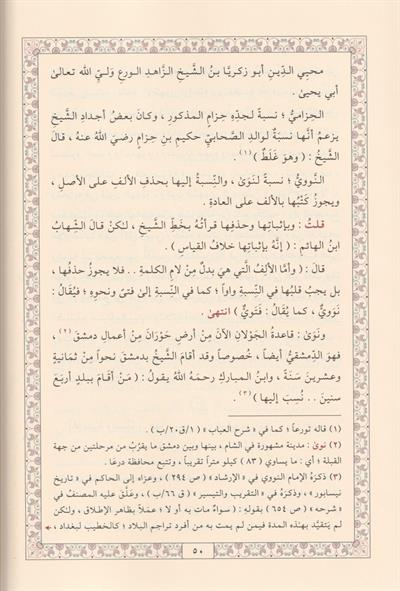 محيي الدِّينِ أبو زكريَّا بنُ الشَّيخِ الزَّاهدِ الورعِ وَليِّ الله تعالىٰ
أبي يحيىٰ .
الحِزاميُّ ؛ نسبةً لجدِّهِ حِزامٍ المذكورِ ، وكانَ بعضُ أجدادِ الشَّيخِ
يزعمُ أنَّها نسبةٌ لوالدِ الصَّحابيِّ حكيمِ بنِ حِزامٍ رضيَ اللهُ عنهُ ، قالَ
الشَّيخُ : ( وهوَ غَلَطٌ ) (١) .
النَّوويُّ ؛ نسبةً لنَوَىٰ ، والنِّسبةُ إليها بحذفِ الألفِ على الأصلِ ،
ويجوزُ كَتْبُها بالألف على العادةِ .
قلتُ : وبإثباتِها وحذفِها قرأتُهُ بخطِّ الشَّيخِ ، لكنْ قالَ الشِّهابُ
ابنُ الهائمِ : ( إنَّهُ بإثباتِها خلافُ القياسِ ) .
قالَ : ( وأمَّا الألِفُ الَّتي هيَ بدلٌ مِنْ لامِ الكلمةِ .. فلا يجوزُ حذفُها ،
بل يجبُ قلبُها في النِّسبةِ واواً ؛ كما في النِّسبةِ إلىٰ فتىً ونحوِهِ ؛ فيُقالُ :
نَوَويٌّ ، كما يُقالُ : فَتَويٌّ ) انتهىٰ .
ونوَىٰ : قاعدةُ الجَوْلانِ الآنَ مِنْ أرضِ حَوْرَانَ مِنْ أعمالِ دمشقَ (٢) ،
فهوَ الدِّمشقيُّ أيضاً ، خُصوصاً وقد أقامَ الشَّيخُ بدمشقَ نحواً مِنْ ثمانيةٍ
وعشرينَ سَنَةً ، وابنُ المباركِ رحمهُ اللهُ يقولُ : ( مَنْ أقامَ ببلدٍ أربعَ
سنينَ .. نُسِبَ إليها ) (٣) .
(١) قاله تورعاً ؛ كما في « شرح العباب » ( ١/ق٢٠/ب ) .
(٢) نوىٰ : مدينة مشهورة في الشام ، بينها وبين دمشق ما يقرُب من مرحلتين من جهة
القبلة ؛ أي : ما يساوي ( ٨٣ ) كيلو متراً تقريباً ، وتتبع محافظة درعا .
(٣) ذكرَهُ الإمام النووي في « الإرشاد » ( ص ٢٩٤ ) ، وعزاه إلى الحاكم في « تاريخ
نيسابور » ، وذكرَهُ في « التقريب والتيسير » ( ق ٦٦/ب ) ، وعَلَّق عليه المصنفُ في
« شرحه » ( ص ٦٥٤ ) بقولِهِ : ( سواءٌ مات به أو لا ؛ عملاً بظاهر الإطلاق ، ولكن
لم يَتقيَّد بهذه المدة فيمن لم يمت به من أفرد تراجم البلاد ؛ كالخطيب لبغداد ،
٥٠